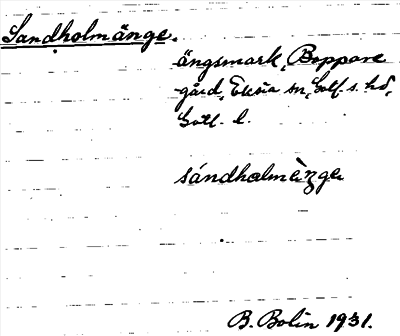 Sandholmänge.
ängsmark, Boppare
gård, Eksta sn, Gotl. s. hd,
Gotl. l.
sándholmèŋge
B. Bolin 1931.